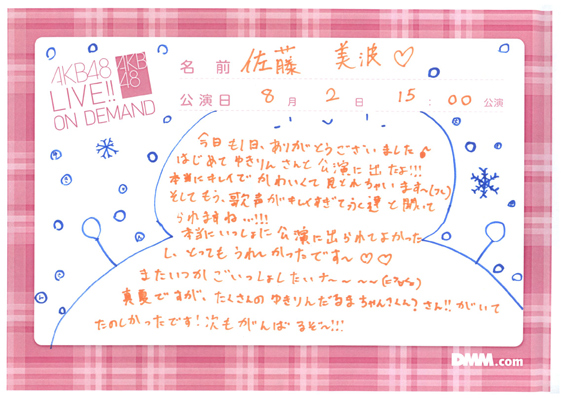 AKB48
LIVE!!
ON DEMAND
AKB
48
名前 佐藤 美波♡
公演日 8月 2日 15:00公演
今日も1日、ありがとうございました♪
はじめてゆきりんさんと公演に出たよ!!!
本当にキレイでかわいくて見とれちゃいます〜
そしてもう、歌声がキレイすぎて
られますね…!!!
本当にいっしょに公演に出られてよかった
し、とってもうれしかったです〜♡♡
またいつかごいっしょしたいナ〜〜〜〜
真夏ですが、たくさんのゆきりんだるまちゃんさん!!がいて
たのしかったです!次もがんばるぞ〜!!!
DMM.com